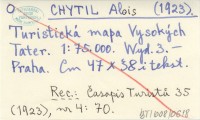 O CHYTIL Alois (1923).
Turistická mapa Vysokých
Tater. 1:75.000. Wyd. 3. –
Praha. Cm 47 x 38 i tekst.
Rec.: Časopis Turistů 35
(1923), nr 4: 70.